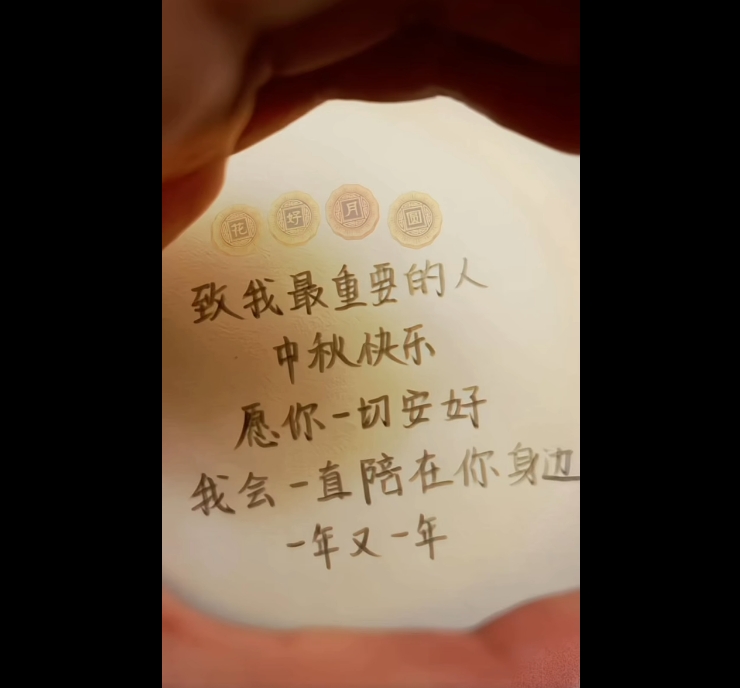 花好月圆
致我最重要的人
中秋快乐
愿你一切安好
我会一直陪在你身边
一年又一年